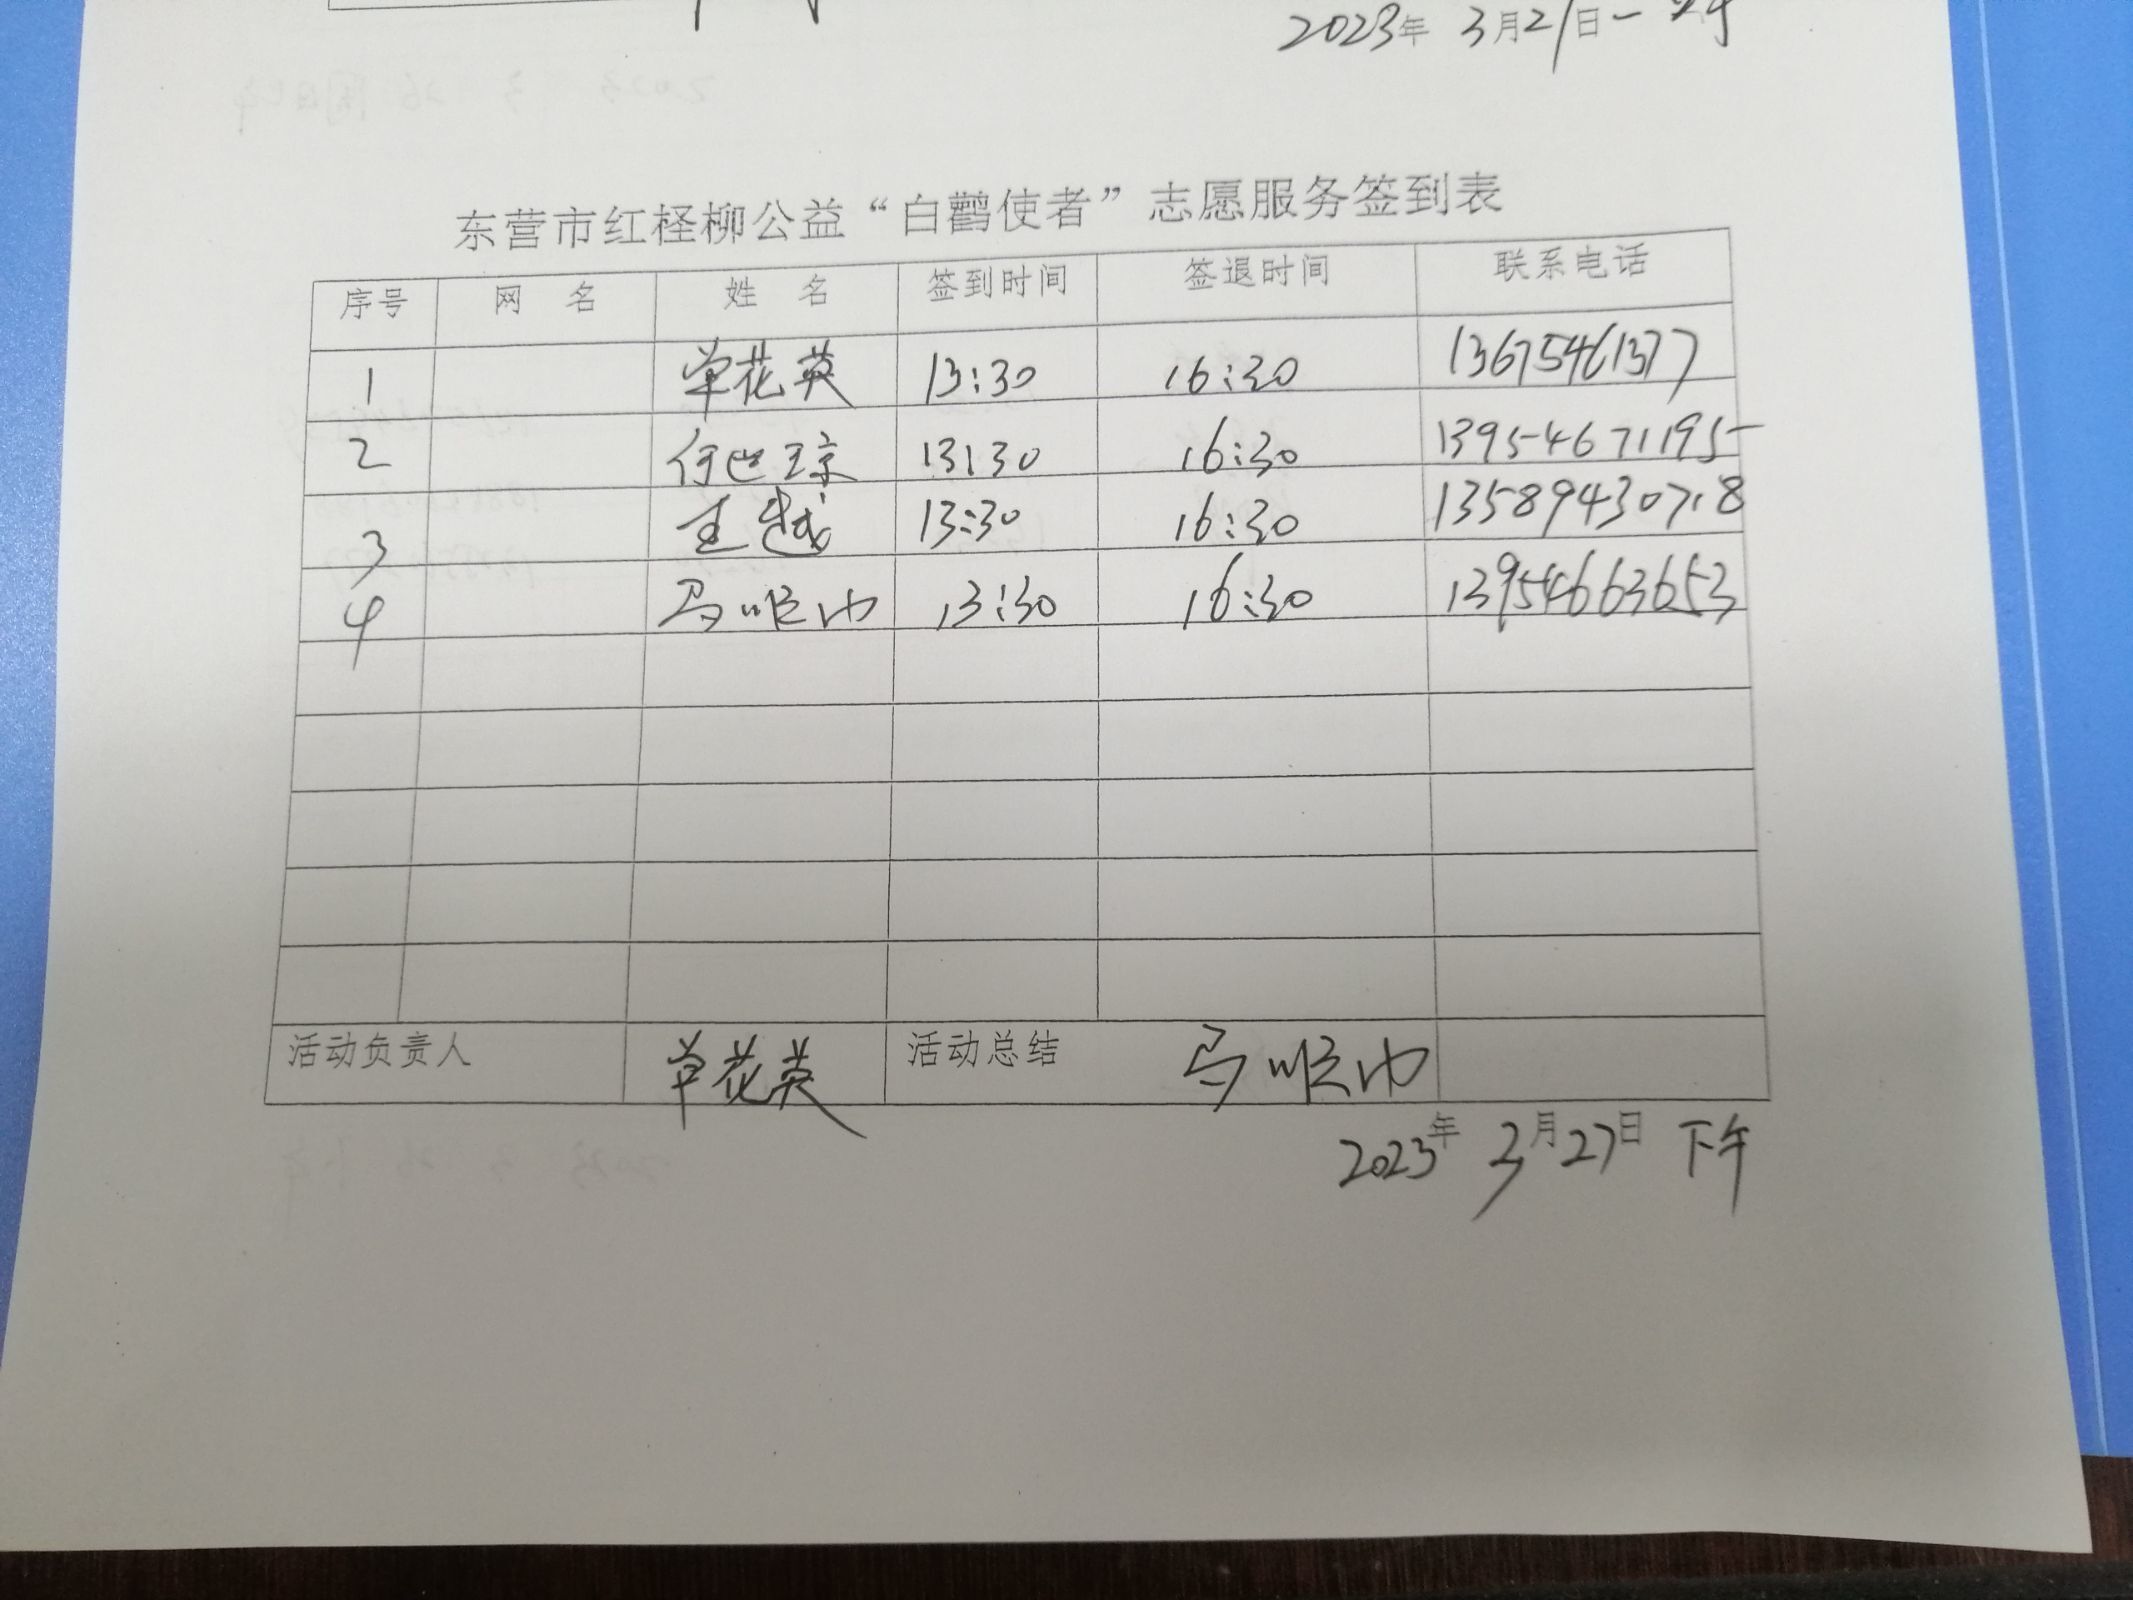 2023年 3月27日
东营市红柽柳公益“白鹳使者”志愿服务签到表
序号 网 名 姓 名 签到时间 签退时间 联系电话
1 单花英 13:30 16:30 13675461377
2 何世琼 13:30 16:30 13954671195
3 王越 13:30 16:30 13589430718
4 马顺 13:30 16:30 13954663653
活动负责人 单花英 活动总结 马顺
2023年 3月27日 下午